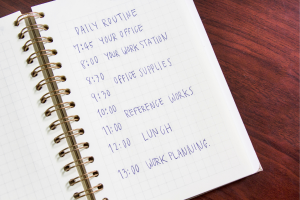 DAILY ROUTINE
7:45 YOUR OFFICE
8:00 YOUR WORK STATION
9:30 OFFICE SUPPLIES
9:30
10:00 REFERENCE WORKS
11:00
12:00 LUNCH
13:00 WORK PLANNING